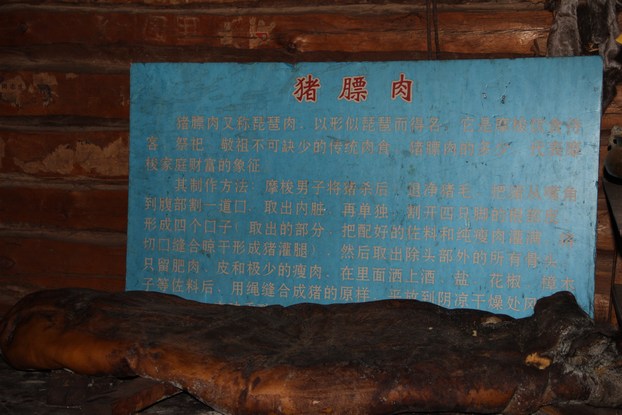 猪膘肉
猪膘肉又称琵琶肉，以形似琵琶而得名，它是
客、祭祀、敬祖不可缺少的传统肉食，猪膘肉的多少，
梭家庭财富的象征。
其制作方法：摩梭男子将猪杀后，退净猪毛，
到腹部割一道口，取出内脏，再单独，割开四只脚的
形成四个口子（取出的部分，把配好的佐料和纯瘦肉
切口缝合晾干形成猪灌腿），然后取出除头部外的所有骨头，
只留肥肉、皮和极少的瘦肉，在里面洒上酒、盐、花椒、
子等佐料后，用绳缝合成猪的原样，平放到阴凉干燥处风